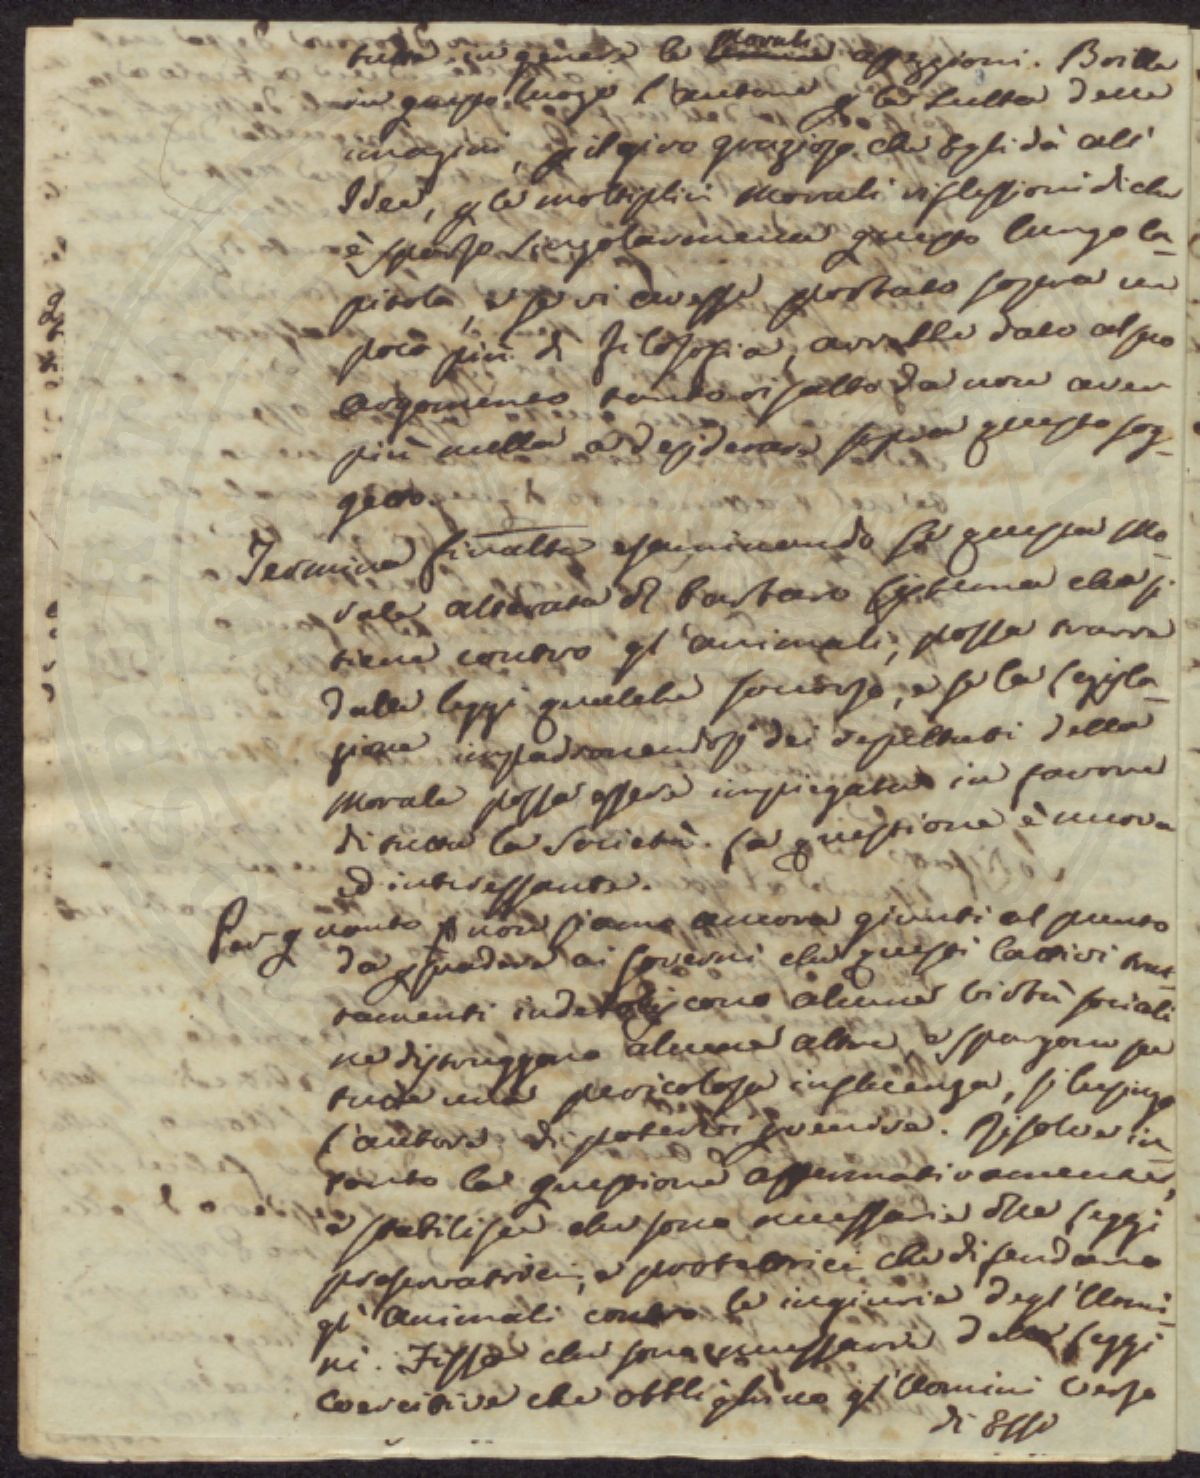 tutte in genere le Morali affezzioni. Brilla
in questo luogo l'autore p la scelta delle
imagini, p il giro grazioso che Egli dà all'
Idee, p le moltiplici Morali riflessioni di che
è sparso singolarmente questo lungo Ca-
pitolo, e se vi avesse portato sopra un
poco più di Filosofia, avrebbe dato al suo
argomento tanto risalto da non aver
più nulla a desiderare sopra questo sog-
getto.
Termina finalte esaminando se questa Mo-
rale alterata dal barbaro sistema che si
tiene contro gl'animali, possa trarre
dalle leggi qualche soccorso, e se la Legisla-
zione impadronendosi dei resultati della
Morale possa essere impiegata in favore
di tutta la Società. La questione è nuova
ed interessante.
Per quanto non siamo ancora giunti al punto
da psuadere ai Governi che questi cattivi trat-
tamenti indeboliscono alcune virtù sociali
ne distruggono alcune altre, e spargono su
tutte una pericolosa influenza, si lusinga
l'autore di poterci pvenire. Risolve in-
tanto la questione affermativamente,
e stabilisce che sono necessarie delle Leggi
preservatrici, e protettrici che difendano
gl'animali contro le ingiurie degl'Uomi-
ni. Fissa che sono necessarie delle Leggi
coercitive che obblighino gl'Uomini verso
di Essi